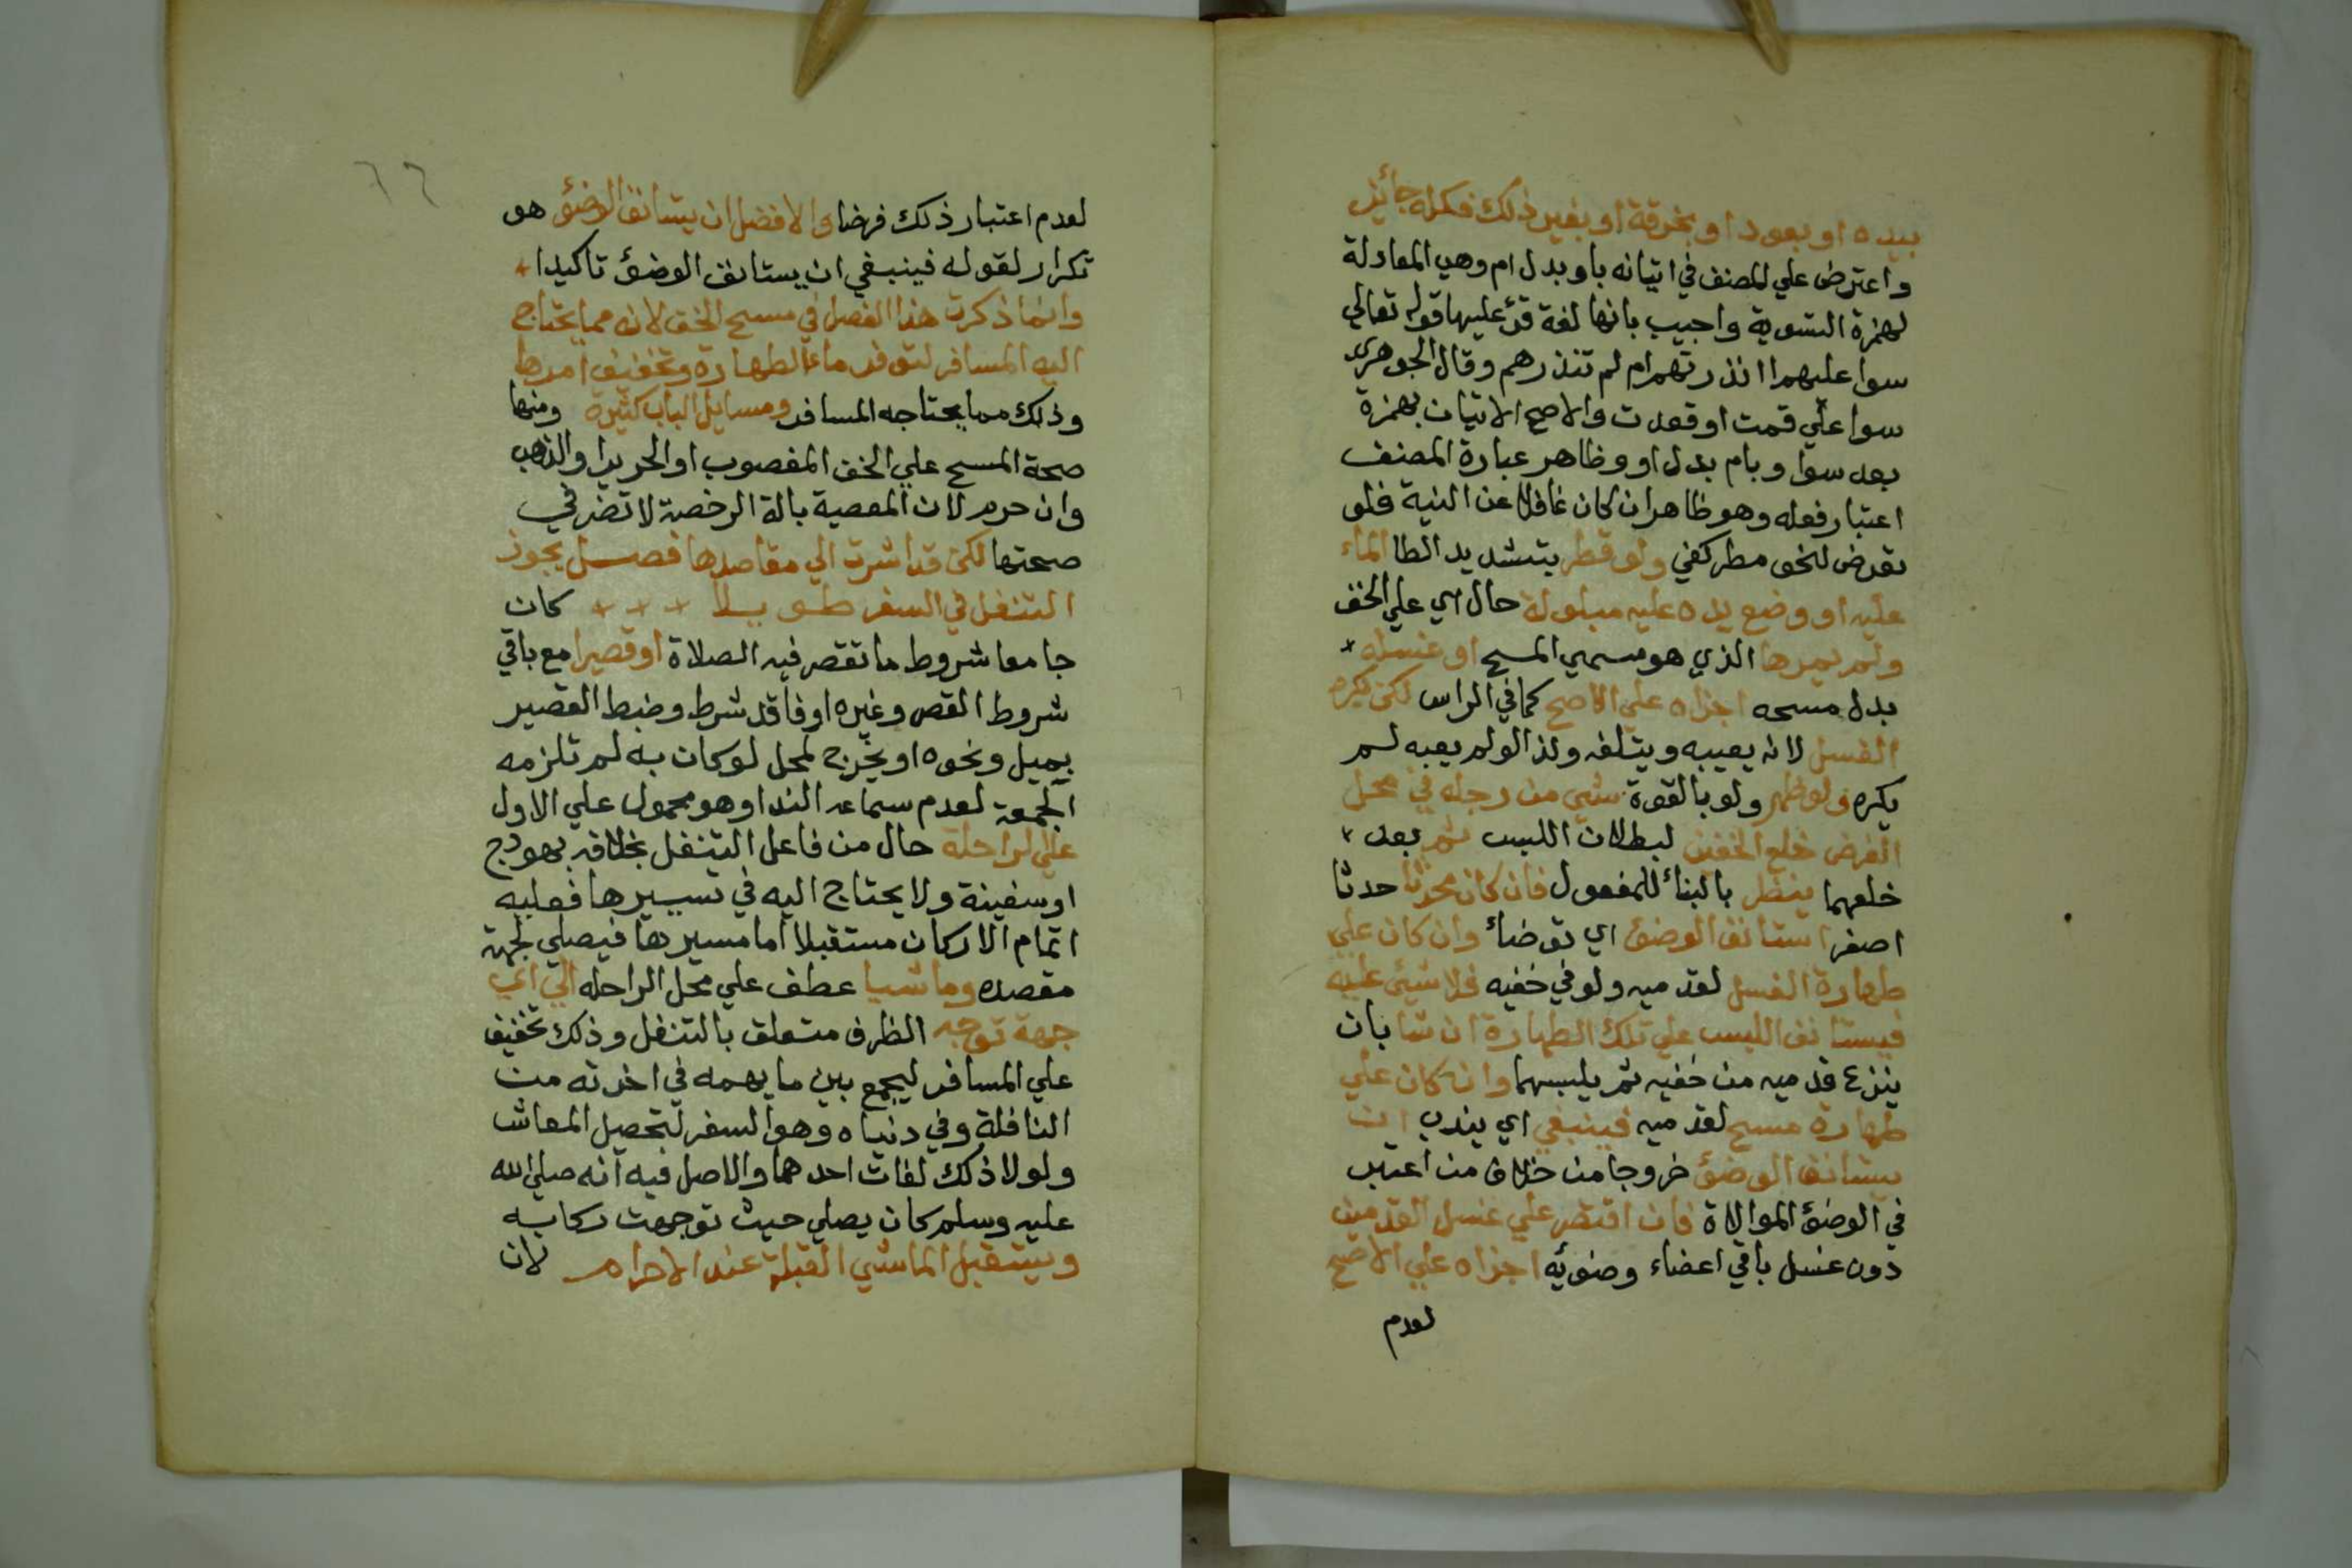 بيده او بعود او بخرقة او بغير ذلك فكله جائز
واعترض علي المصنف في اتيانه باو بدل ام وهي المعادلة
لهمزة التسوية واجيب بانها لغة قرئ عليها قوله تعالي
سوا عليهم اانذرتهم ام لم تنذرهم وقال الجوهري
سوا علي قمت او قعدت والاصح الاتيان بهمزة
بعد سوا وبام بدل او وظاهر عبارة المصنف
اعتبار فعله وهو ظاهر ان كان غافلا عن النية فلو
تعرض لنحو مطر كفي ولو قطر بتشديد الطا الماء
عليه او وضع يده عليه مبلولة حال اي علي الخف
ولم يمرها الذي هو مسمي المسح او غسله
بدل مسحه اجزاه علي الاصح كما في الراس لكن يكره
الغسل لانه يعيبه ويتلفه ولذا لو لم يعبه لم
يكره ولو ظهر ولو بالقوة شيي من رجله في محل
الفرض خلع الخفين لبطلان اللبس ثم بعد
خلعهما ينظر بالبناء للمفعول فان كان محدثا حدثا
اصغر استانف الوضوء اي توضاء وان كان علي
طهارة الغسل لقدميه ولو في خفيه فلا شيئ عليه
فيستانف اللبس علي تلك الطهارة ان شا بان
ينزع قدميه من خفيه ثم يلبسهما وان كان علي
طهارة مسح لقدميه فينبغي اي يندب ان
يستانف الوضوء خروجا من خلاف من اعتبر
في الوضوء الموالاة فان اقتصر علي غسل القدمين
دون غسل باقي اعضاء وضوئه اجزاه علي الاصح
لعدم
٦٦
لعدم اعتبار ذلك فرضا والافضل ان يستانف الوضوء هو
تكرار لقوله فينبغي ان يستانف الوضوء تاكيدا
وانما ذكرت هذا الفصل في مسح الخف لانه مما يحتاج
اليه المسافر لتوفر ماء الطهارة وتخفيف امرها
وذلك مما يحتاجه المسافر ومسايل الباب كثيرة ومنها
صحة المسح علي الخف المغصوب او الحرير او الذهب
وان حرم لان المعصية بالة الرخصة لا تضر في
صحتها لكن قد اشرت الي مقاصدها فصل يجوز
التنفل في السفر طويلا كان
جامعا شروط ما تقصر فيه الصلاة او قصيرا مع باقي
شروط القصر وغيره او فاقد شرط وضبط القصير
بميل ونحوه او يخرج لمحل لو كان به لم تلزمه
الجمعة لعدم سماعه الندا وهو محمول علي الاول
علي الراحلة حال من فاعل التنفل بخلافه بهودج
او سفينة ولا يحتاج اليه في تسييرها فعليه
اتمام الاركان مستقبلا اما مسيرها فيصلي لجهة
مقصده وماشيا عطف علي محل الراحله الي اي
جهة توجه الظرف متعلق بالتنفل وذلك تخفيف
علي المسافر ليجمع بين ما يهمه في اخرته من
النافلة وفي دنياه وهو السفر لتحصيل المعاش
ولولا ذلك لفات احدهما والاصل فيه انه صلي الله
عليه وسلم كان يصلي حيث توجهت ركابه
ويستقبل الماشي القبلة عند الاحرام لان